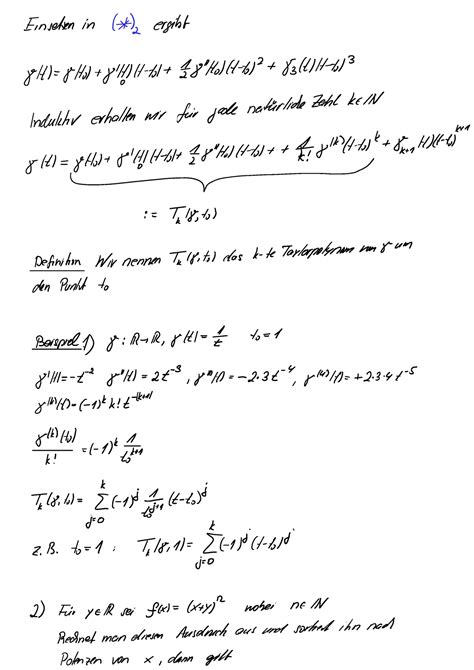 Einsetzen in (*)₂ ergibt
γ(t) = γ(t₀) + γ'(t₀)(t-t₀) + 1/2 γ''(t₀)(t-t₀)² + γ₃(t)(t-t₀)³
Induktiv erhalten wir für jede natürliche Zahl k∈ℕ
γ(t) = γ(t₀) + γ'(t₀)(t-t₀) + 1/2 γ''(t₀)(t-t₀) + + 1/k! γ^(k)(t-t₀)^k + γ_{k+1}(t)(t-t₀)^{k+1}
:= T_k(γ,t₀)
Definition Wir nennen T_k(γ,t₀) das k-te Taylorpolynom von γ um
den Punkt t₀
Beispiel 1) γ: ℝ→ℝ, γ(t) = 1/t t₀=1
γ'(t)=-t^{-2} γ''(t)=2t^{-3}, γ'''(t)=-2·3t^{-4}, γ^(4)(t)=+2·3·4t^{-5}
γ^(k)(t)=(-1)^k k! t^{-(k+1)}
γ^(k)(t₀)/k! = (-1)^k 1/t₀^{k+1}
T_k(γ,t₀) = ∑_{j=0}^{k} (-1)^j 1/t₀^{j+1} (t-t₀)^j
z.B. t₀=1 : T_k(γ,1) = ∑_{j=0}^{k} (-1)^j (t-t₀)^j
2) Für y∈ℝ sei f(x) = (x+y)^n wobei n∈ℕ
Rechnet man diesen Ausdruck aus und sortiert ihn nach
Potenzen von x, dann gilt